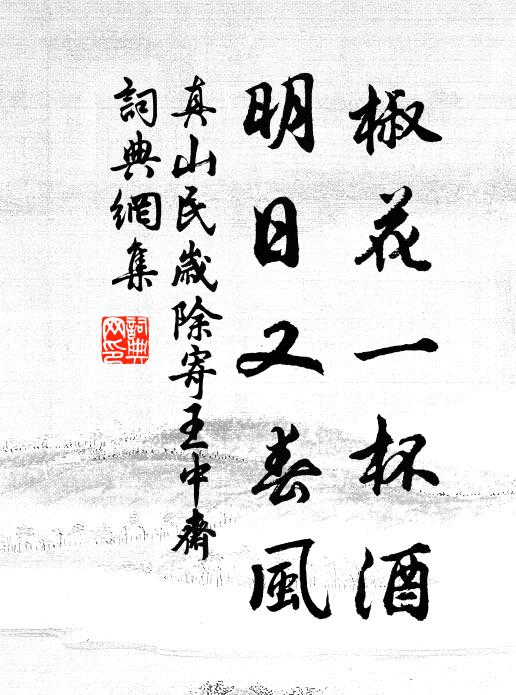 椒花一杯酒
明日又春風
真山民歲除寄王中齋
詞典網集
詞典
网印